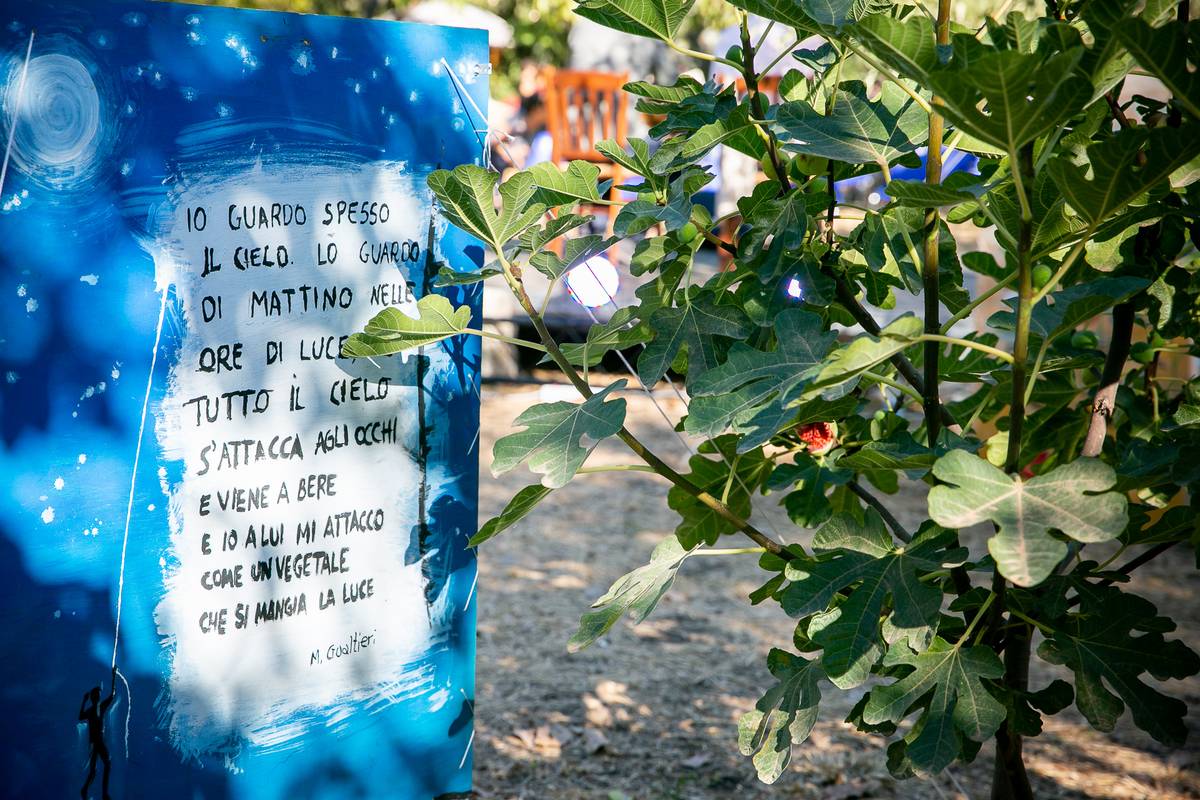 IO GUARDO SPESSO
IL CIELO. LO GUARDO
DI MATTINO NELLE
ORE DI LUCE
TUTTO IL CIELO
S'ATTACCA AGLI OCCHI
E VIENE A BERE
E IO A LUI MI ATTACCO
COME UN VEGETALE
CHE SI MANGIA LA LUCE
M. Gualtieri